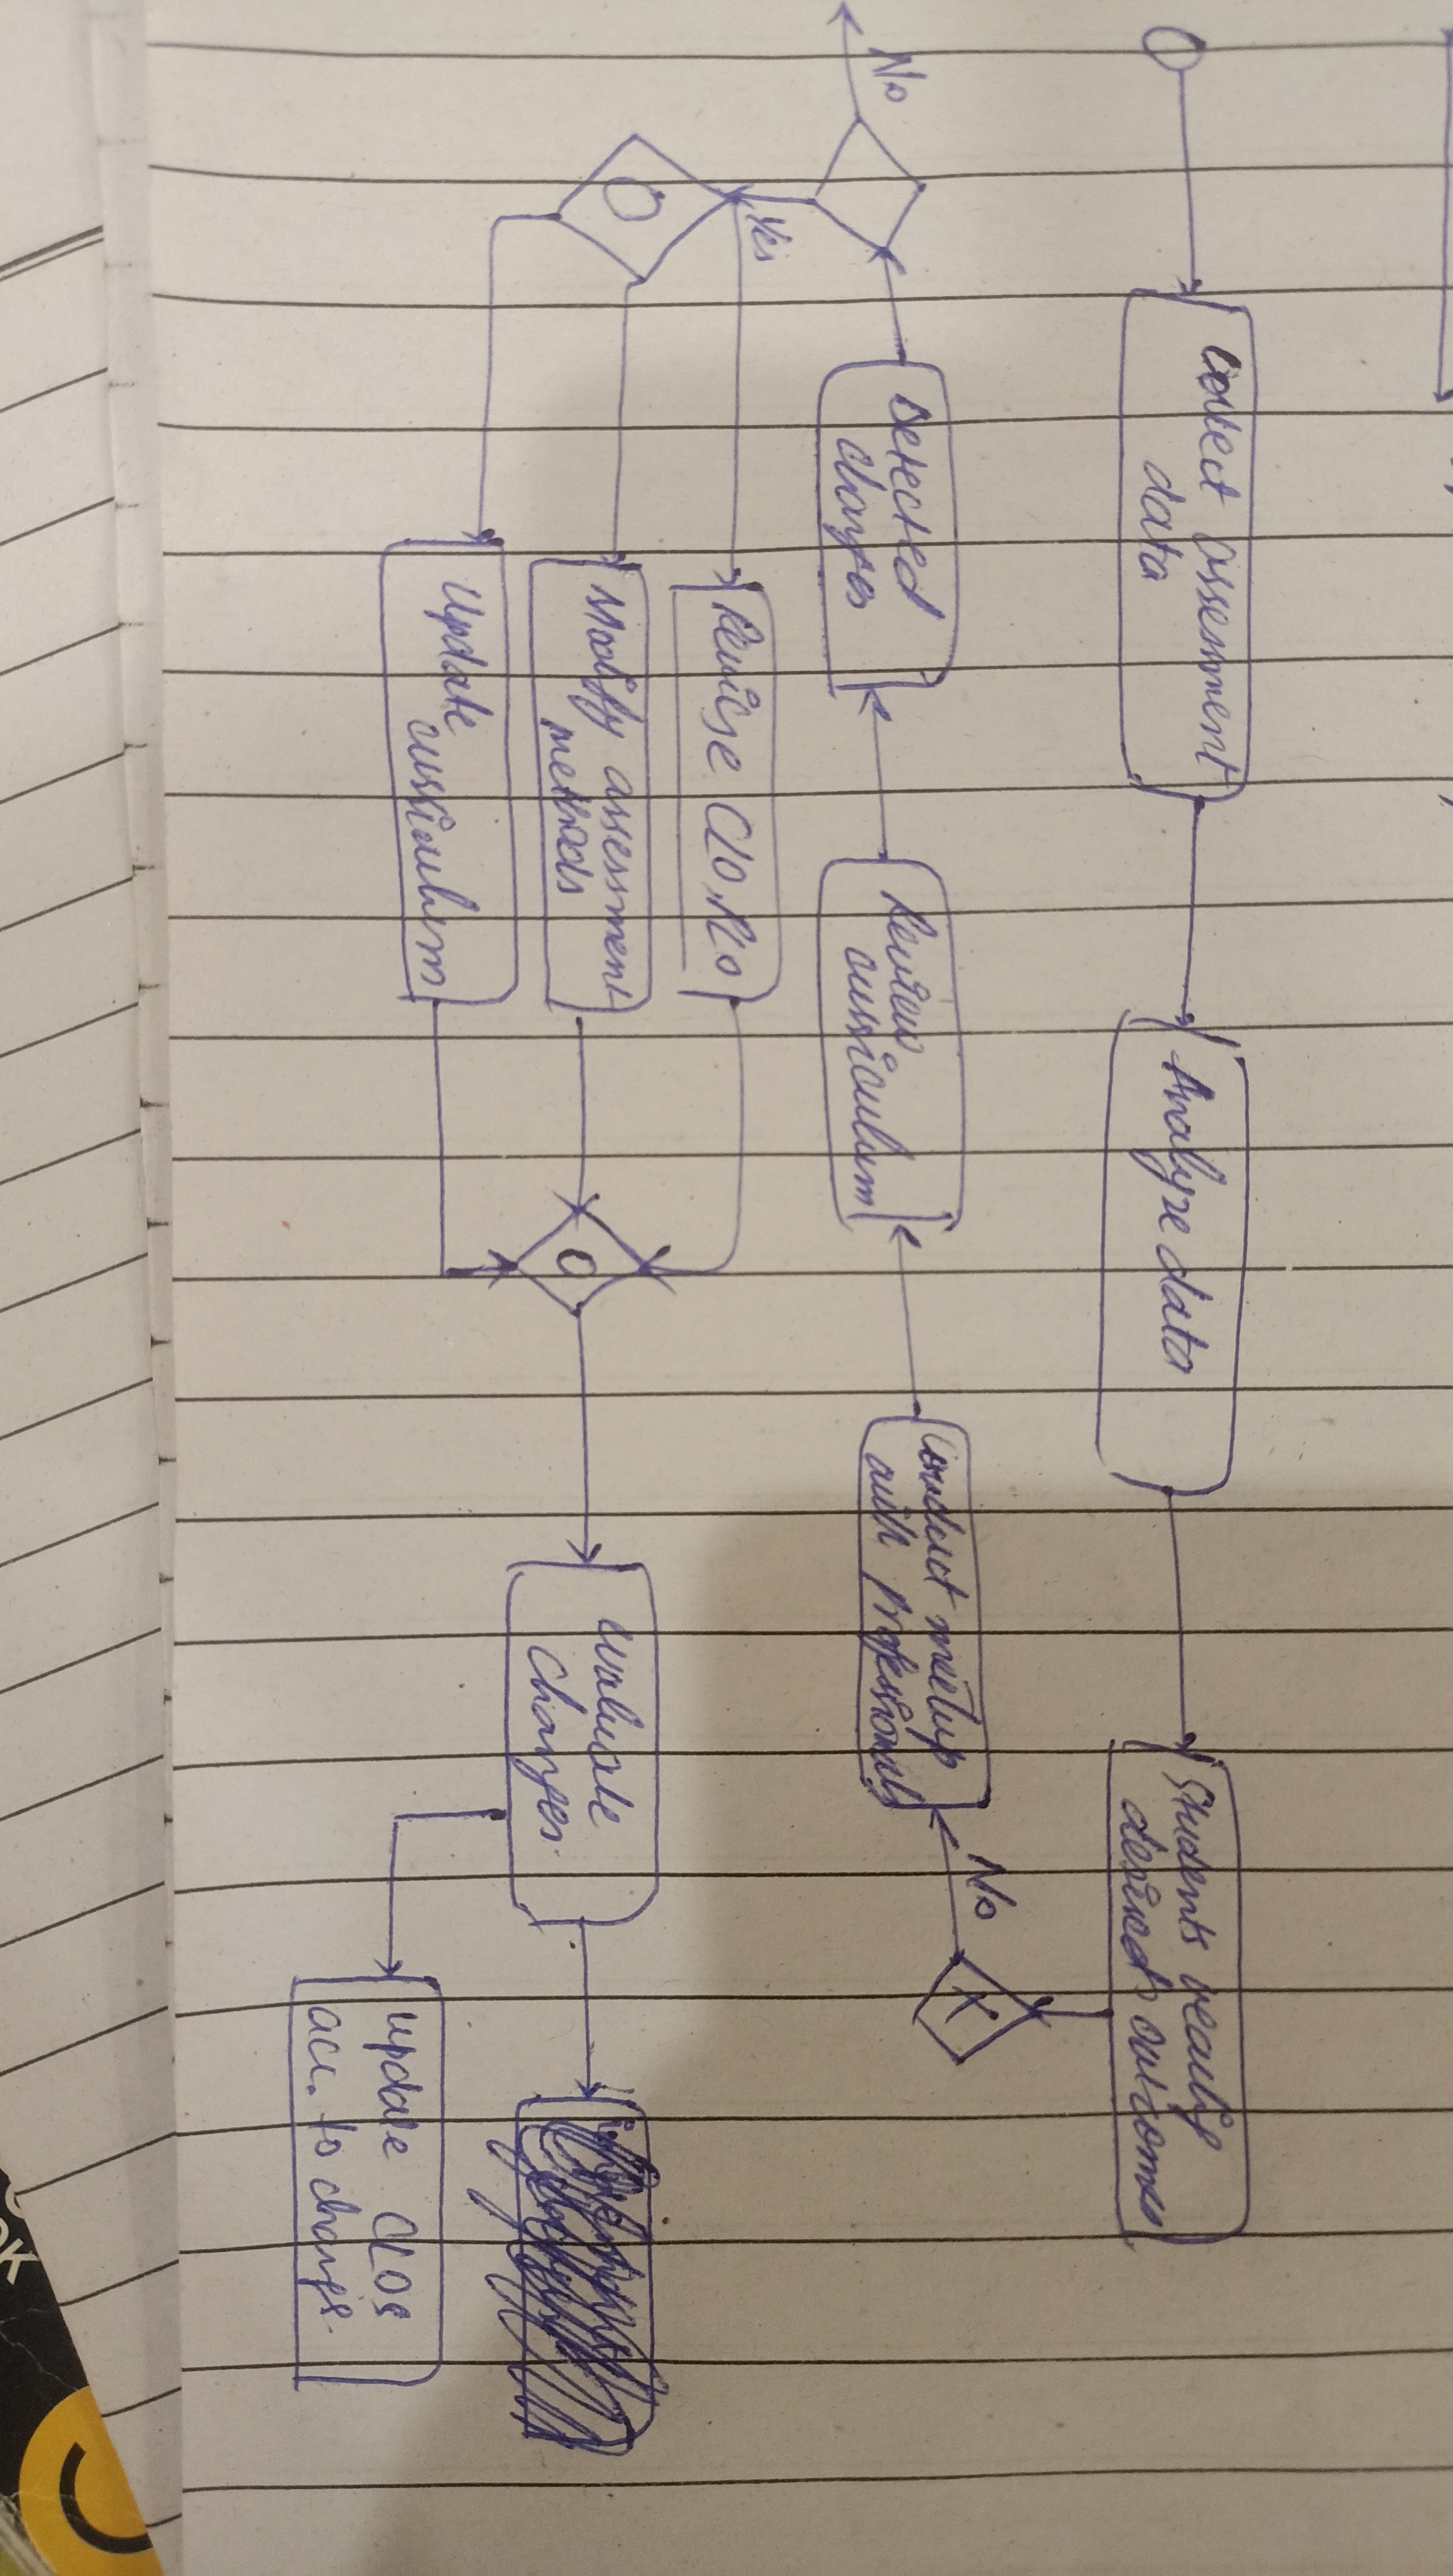 Collect assessment
data
Analyze data
Students really
desired outcomes
X
No
Conduct meetup
with professionals
Review
curriculum
Detected
changes
No
Yes
O
Revise CLO, PLO
Modify assessment
methods
Update
curriculum
O
Evaluate
changes.
update CLOs
acc. to change.
OK